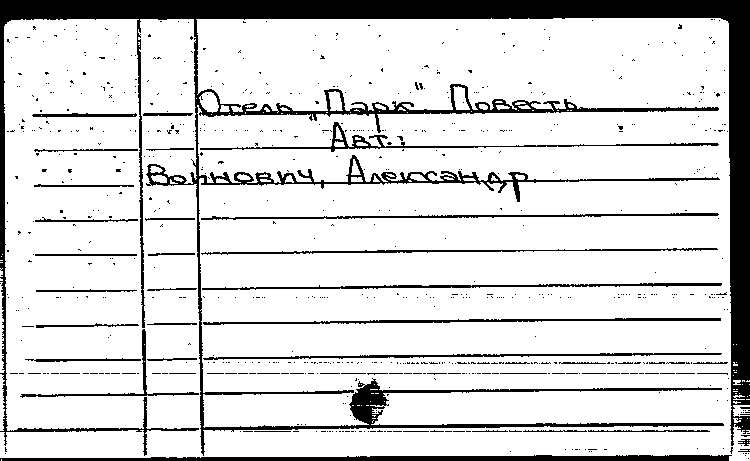 Отель „Парк" Повесть
Авт.:
Воинович, Александр.